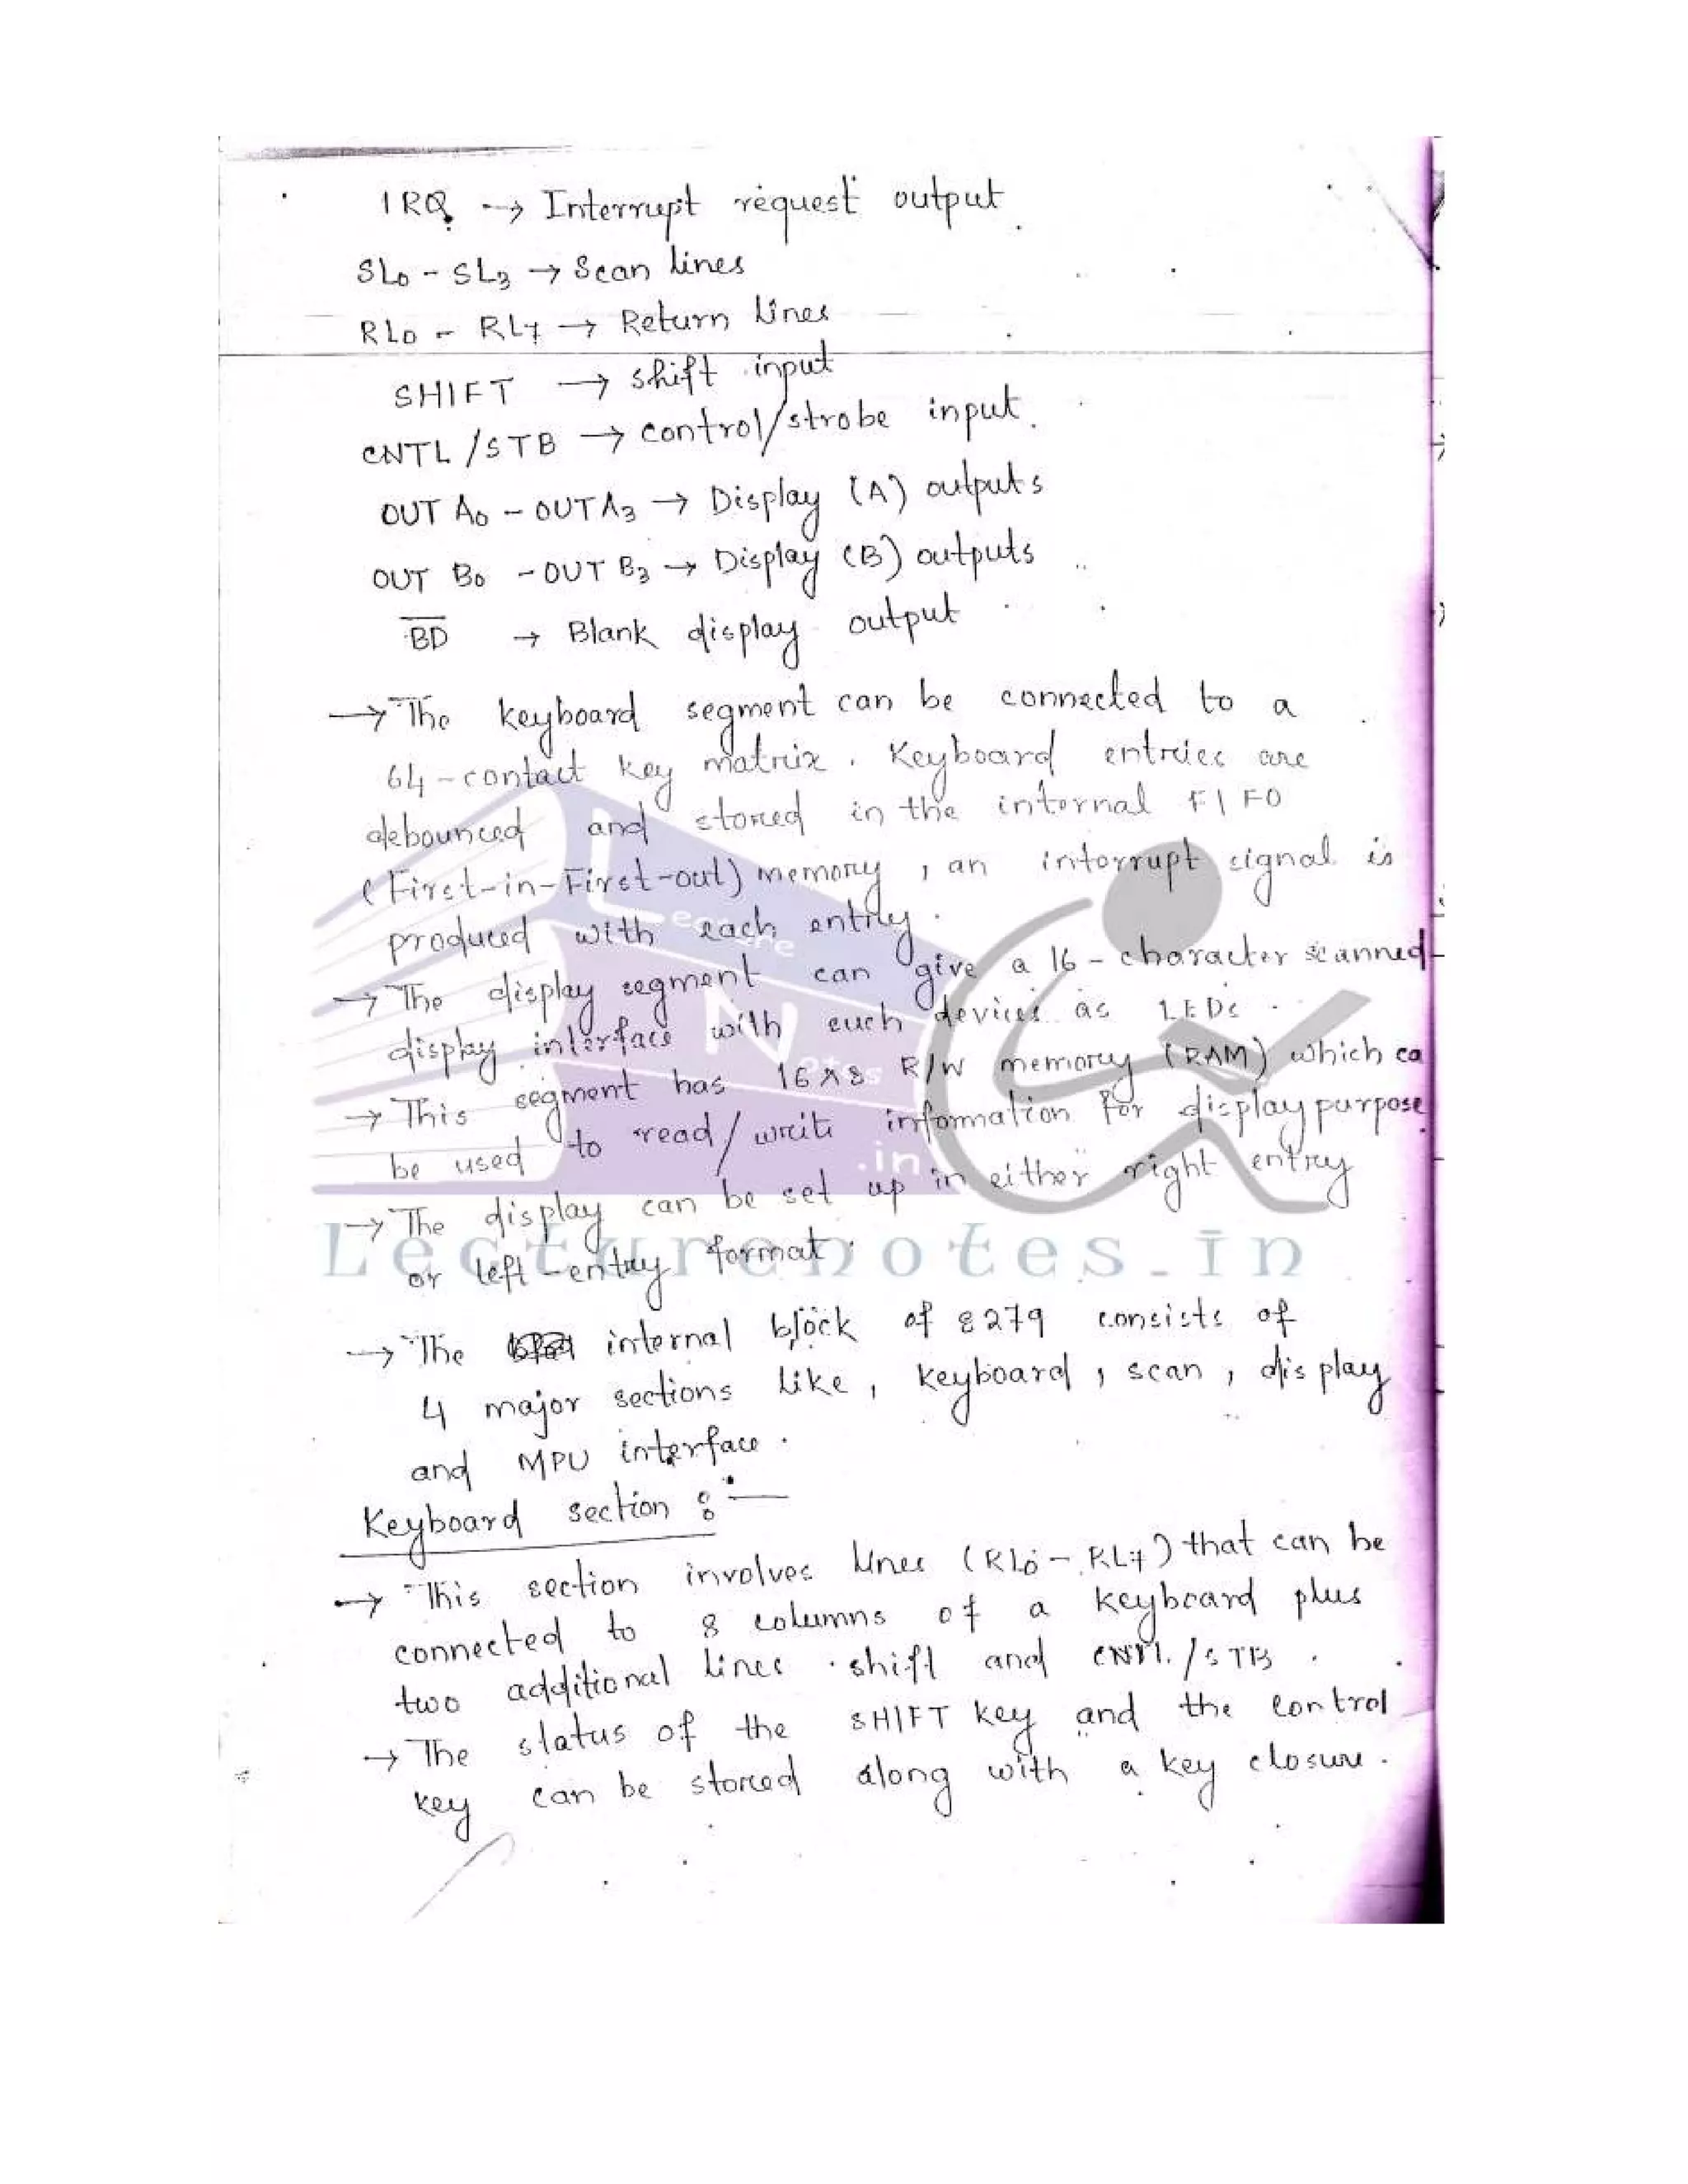 IRQ → Interrupt request output.
SL0 - SL3 → Scan lines
RL0 - RL7 → Return lines
SHIFT → shift input
CNTL/STB → control/strobe input.
OUT A0 - OUTA3 → Display (A) outputs
OUT B0 - OUT B3 → Display (B) outputs
B̅D̅ → Blank display output
→ The keyboard segment can be connected to a
64-contact key matrix. Keyboard entries are
debounced and stored in the internal FIFO
(First-in-First-out) memory, an interrupt signal is
produced with each entry.
→ The display segment can give a 16-character scanned
display interface with such devices as LEDs.
→ This segment has 16×8 R/W memory (RAM) which ca
be used to read/write information for display purpose.
→ The display can be set up in either right entry
or left-entry format.
→ The internal block of 8279 consists of
4 major sections like, keyboard, scan, display
and MPU interface.
Keyboard section :-
→ This section involves lines (RL0 - RL7) that can be
connected to 8 columns of a keyboard plus
two additional lines shift and CNTL/STB.
→ The status of the SHIFT key and the control
key can be stored along with a key closure.
Lecture
Notes
.in
Lecturenotes.in